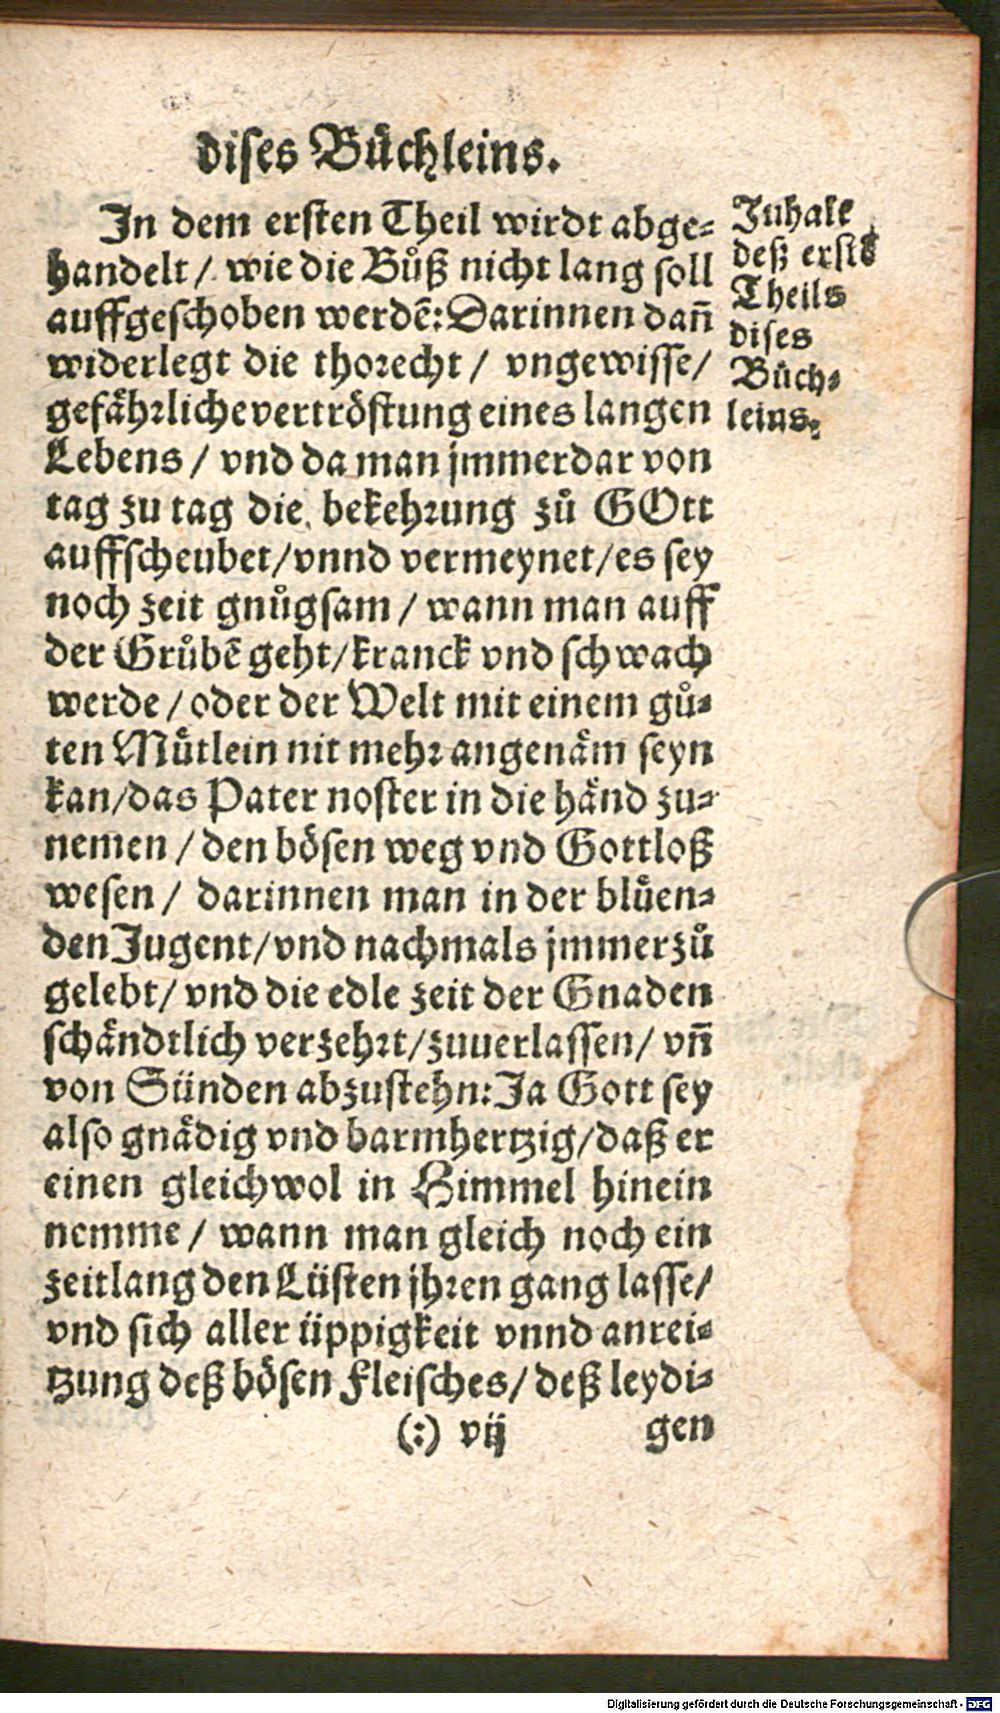 dises Bůchleins.
In dem ersten Theil wirdt abge-
handelt / wie die Bůß nicht lang soll
auffgeschoben werdẽ: Darinnen dañ
widerlegt die thorecht / vngewisse /
gefåhrliche vertröstung eines langen
Lebens / vnd da man jmmerdar von
tag zu tag die bekehrung zů GOtt
auffscheubet / vnnd vermeynet / es sey
noch zeit gnůgsam / wann man auff
der Grůbẽ geht / kranck vnd schwach
werde / oder der Welt mit einem gů-
ten Můtlein nit mehr angenåm seyn
kan / das Pater noster in die hånd zu-
nemen / den bösen weg vnd Gottloß
wesen / darinnen man in der blůen-
den Jugent / vnd nachmals jmmerzů
gelebt / vnd die edle zeit der Gnaden
schåndtlich verzehrt / zuuerlassen / vñ
von Sünden abzustehn: Ja Gott sey
also gnådig vnd barmhertzig / daß er
einen gleichwol in Himmel hinein
nemme / wann man gleich noch ein
zeitlang den Lüsten jhren gang lasse /
vnd sich aller üppigkeit vnnd anrei-
tzung deß bösen Fleisches / deß leydi-
(:) vij gen
Inhalt
deß erstẽ
Theils
dises
Bůch-
leins.
Digitalisierung gefördert durch die Deutsche Forschungsgemeinschaft - DFG